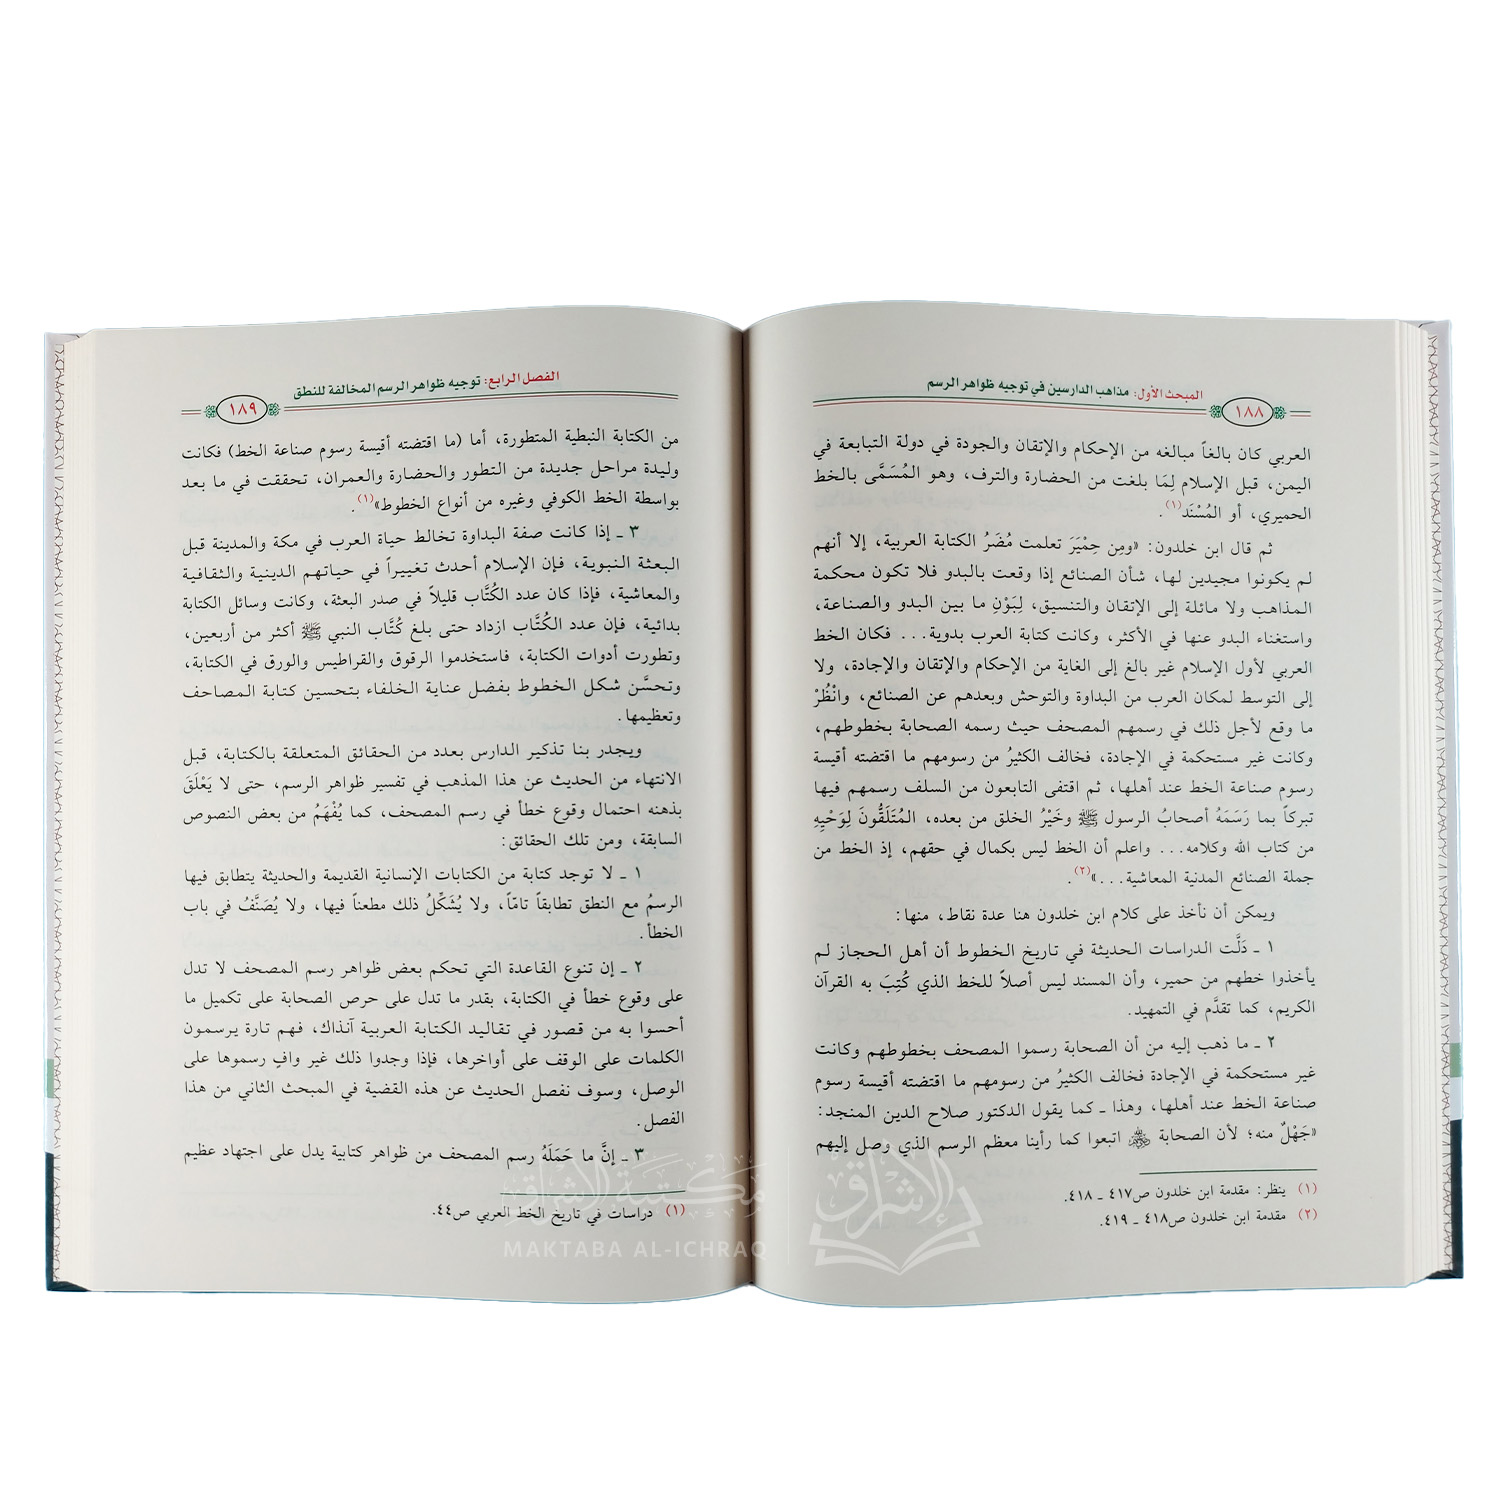 المبحث الأول: مذاهب الدارسين في توجيه ظواهر الرسم
١٨٨
العربي كان بالغاً مبالغه من الإحكام والإتقان والجودة في دولة التبابعة في
اليمن، قبل الإسلام لِمَا بلغت من الحضارة والترف، وهو المُسَمَّى بالخط
الحميري، أو المُسْنَد(١).
ثم قال ابن خلدون: «ومِن حِمْيَرَ تعلمت مُضَرُ الكتابة العربية، إلا أنهم
لم يكونوا مجيدين لها، شأن الصنائع إذا وقعت بالبدو فلا تكون محكمة
المذاهب ولا مائلة إلى الإتقان والتنسيق، لِبَوْنِ ما بين البدو والصناعة،
واستغناء البدو عنها في الأكثر، وكانت كتابة العرب بدوية... فكان الخط
العربي لأول الإسلام غير بالغ إلى الغاية من الإحكام والإتقان والإجادة، ولا
إلى التوسط لمكان العرب من البداوة والتوحش وبعدهم عن الصنائع، وانْظُرْ
ما وقع لأجل ذلك في رسمهم المصحف حيث رسمه الصحابة بخطوطهم،
وكانت غير مستحكمة في الإجادة، فخالف الكثيرُ من رسومهم ما اقتضته أقيسة
رسوم صناعة الخط عند أهلها، ثم اقتفى التابعون من السلف رسمهم فيها
تبركاً بما رَسَمَهُ أصحابُ الرسول ﷺ وخَيْرُ الخلق من بعده، المُتَلَقُّونَ لِوَحْيِهِ
من كتاب الله وكلامه... واعلم أن الخط ليس بكمال في حقهم، إذ الخط من
جملة الصنائع المدنية المعاشية...»(٢).
ويمكن أن نأخذ على كلام ابن خلدون هنا عدة نقاط، منها:
١ ـ دَلَّت الدراسات الحديثة في تاريخ الخطوط أن أهل الحجاز لم
يأخذوا خطهم من حمير، وأن المسند ليس أصلاً للخط الذي كُتِبَ به القرآن
الكريم، كما تقدَّم في التمهيد.
٢ ـ ما ذهب إليه من أن الصحابة رسموا المصحف بخطوطهم وكانت
غير مستحكمة في الإجادة فخالف الكثيرُ من رسومهم ما اقتضته أقيسة رسوم
صناعة الخط عند أهلها، وهذا ـ كما يقول الدكتور صلاح الدين المنجد:
«جَهْلٌ منه؛ لأن الصحابة ﷺ اتبعوا كما رأينا معظم الرسم الذي وصل إليهم
(١) ينظر: مقدمة ابن خلدون ص٤١٧ ـ ٤١٨.
(٢) مقدمة ابن خلدون ص٤١٨ ـ ٤١٩.
الفصل الرابع: توجيه ظواهر الرسم المخالفة للنطق
١٨٩
من الكتابة النبطية المتطورة، أما (ما اقتضته أقيسة رسوم صناعة الخط) فكانت
وليدة مراحل جديدة من التطور والحضارة والعمران، تحققت في ما بعد
بواسطة الخط الكوفي وغيره من أنواع الخطوط»(١).
٣ ـ إذا كانت صفة البداوة تخالط حياة العرب في مكة والمدينة قبل
البعثة النبوية، فإن الإسلام أحدث تغييراً في حياتهم الدينية والثقافية
والمعاشية، فإذا كان عدد الكُتَّاب قليلاً في صدر البعثة، وكانت وسائل الكتابة
بدائية، فإن عدد الكُتَّاب ازداد حتى بلغ كُتَّاب النبي ﷺ أكثر من أربعين،
وتطورت أدوات الكتابة، فاستخدموا الرقوق والقراطيس والورق في الكتابة،
وتحسَّن شكل الخطوط بفضل عناية الخلفاء بتحسين كتابة المصاحف
وتعظيمها.
ويجدر بنا تذكير الدارس بعدد من الحقائق المتعلقة بالكتابة، قبل
الانتهاء من الحديث عن هذا المذهب في تفسير ظواهر الرسم، حتى لا يَعْلَقَ
بذهنه احتمال وقوع خطأ في رسم المصحف، كما يُفْهَمُ من بعض النصوص
السابقة، ومن تلك الحقائق:
١ ـ لا توجد كتابة من الكتابات الإنسانية القديمة والحديثة يتطابق فيها
الرسمُ مع النطق تطابقاً تامّاً، ولا يُشَكِّلُ ذلك مطعناً فيها، ولا يُصَنَّفُ في باب
الخطأ.
٢ ـ إن تنوع القاعدة التي تحكم بعض ظواهر رسم المصحف لا تدل
على وقوع خطأ في الكتابة، بقدر ما تدل على حرص الصحابة على تكميل ما
أحسوا به من قصور في تقاليد الكتابة العربية آنذاك، فهم تارة يرسمون
الكلمات على الوقف على أواخرها، فإذا وجدوا ذلك غير وافٍ رسموها على
الوصل، وسوف نفصل الحديث عن هذه القضية في المبحث الثاني من هذا
الفصل.
٣ ـ إنَّ ما حَمَلَهُ رسم المصحف من ظواهر كتابية يدل على اجتهاد عظيم
(١) دراسات في تاريخ الخط العربي ص٤٤.
مكتبة الإشراق
MAKTABA AL-ICHRAQ
الإشراق